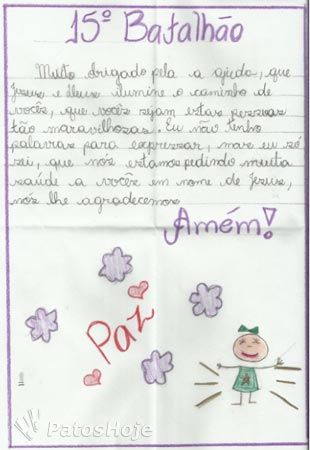 15º Batalhão
Muito obrigado pela a ajuda, que
Jesus e Deus ilumine o caminho de
vocês, que vocês sejam estas pessoas
tão maravilhozas. Eu não tenho
palavras para expressar, mas eu só
sei, que nós estamos pedindo muita
saúde a vocês em nome de Jesus,
nós lhe agradecemos
Amém!
Paz
PatosHoje